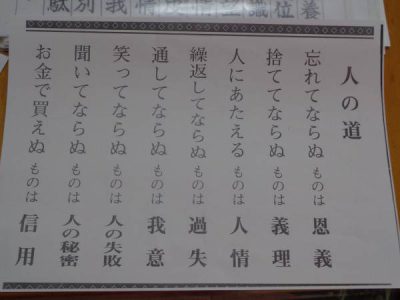 人の道
忘れてならぬ ものは 恩義
捨ててならぬ ものは 義理
人にあたえる ものは 人情
繰返してならぬ ものは 過失
通してならぬ ものは 我意
笑ってならぬ ものは 人の失敗
聞いてならぬ ものは 人の秘密
お金で買えぬ ものは 信用